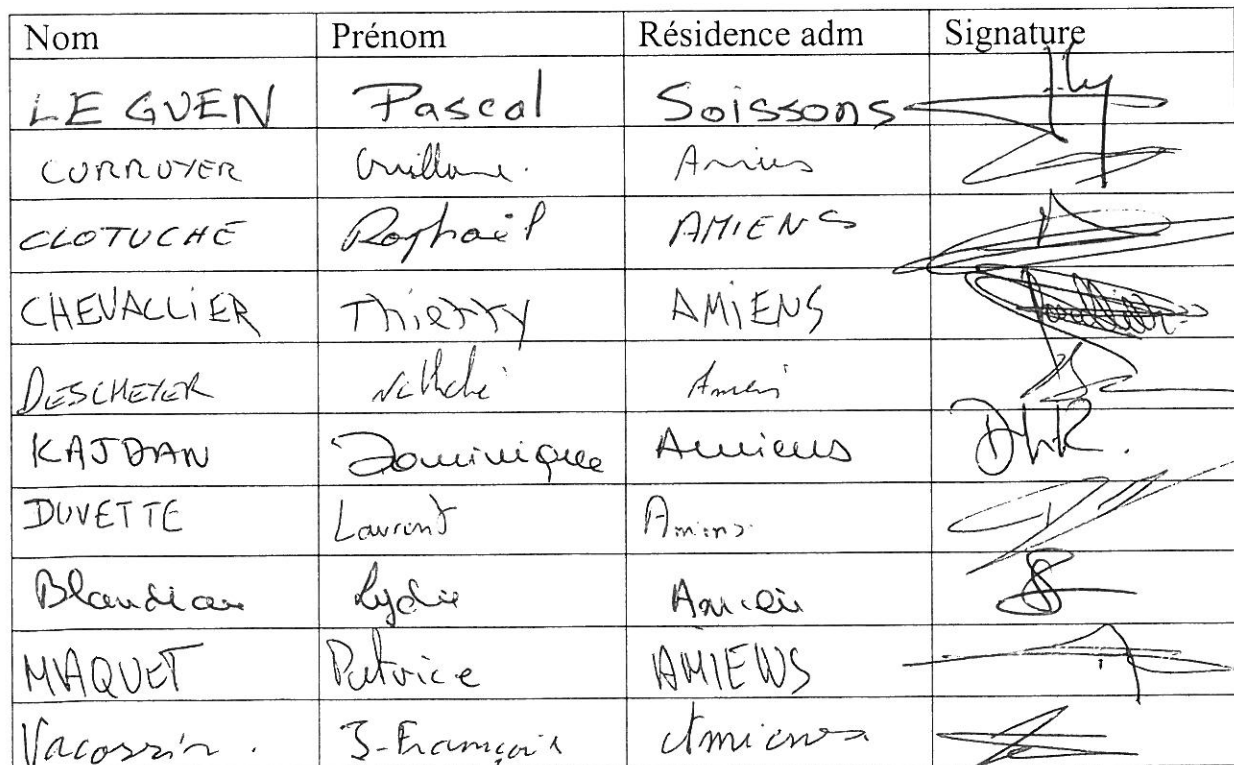 Nom Prénom Résidence adm Signature
LE GUEN Pascal Soissons
CURRUYER Guillaume. Amiens
CLOTUCHÉ Raphaël AMIENS
CHEVALLIER Thierry AMIENS
DESCHEYER Amiens
KAJDAN Dominique Amiens DHK.
DUVETTE Laurent Amiens
Lydie Amiens
MAQUET Patrice AMIENS
Vacossin. J-François Amiens